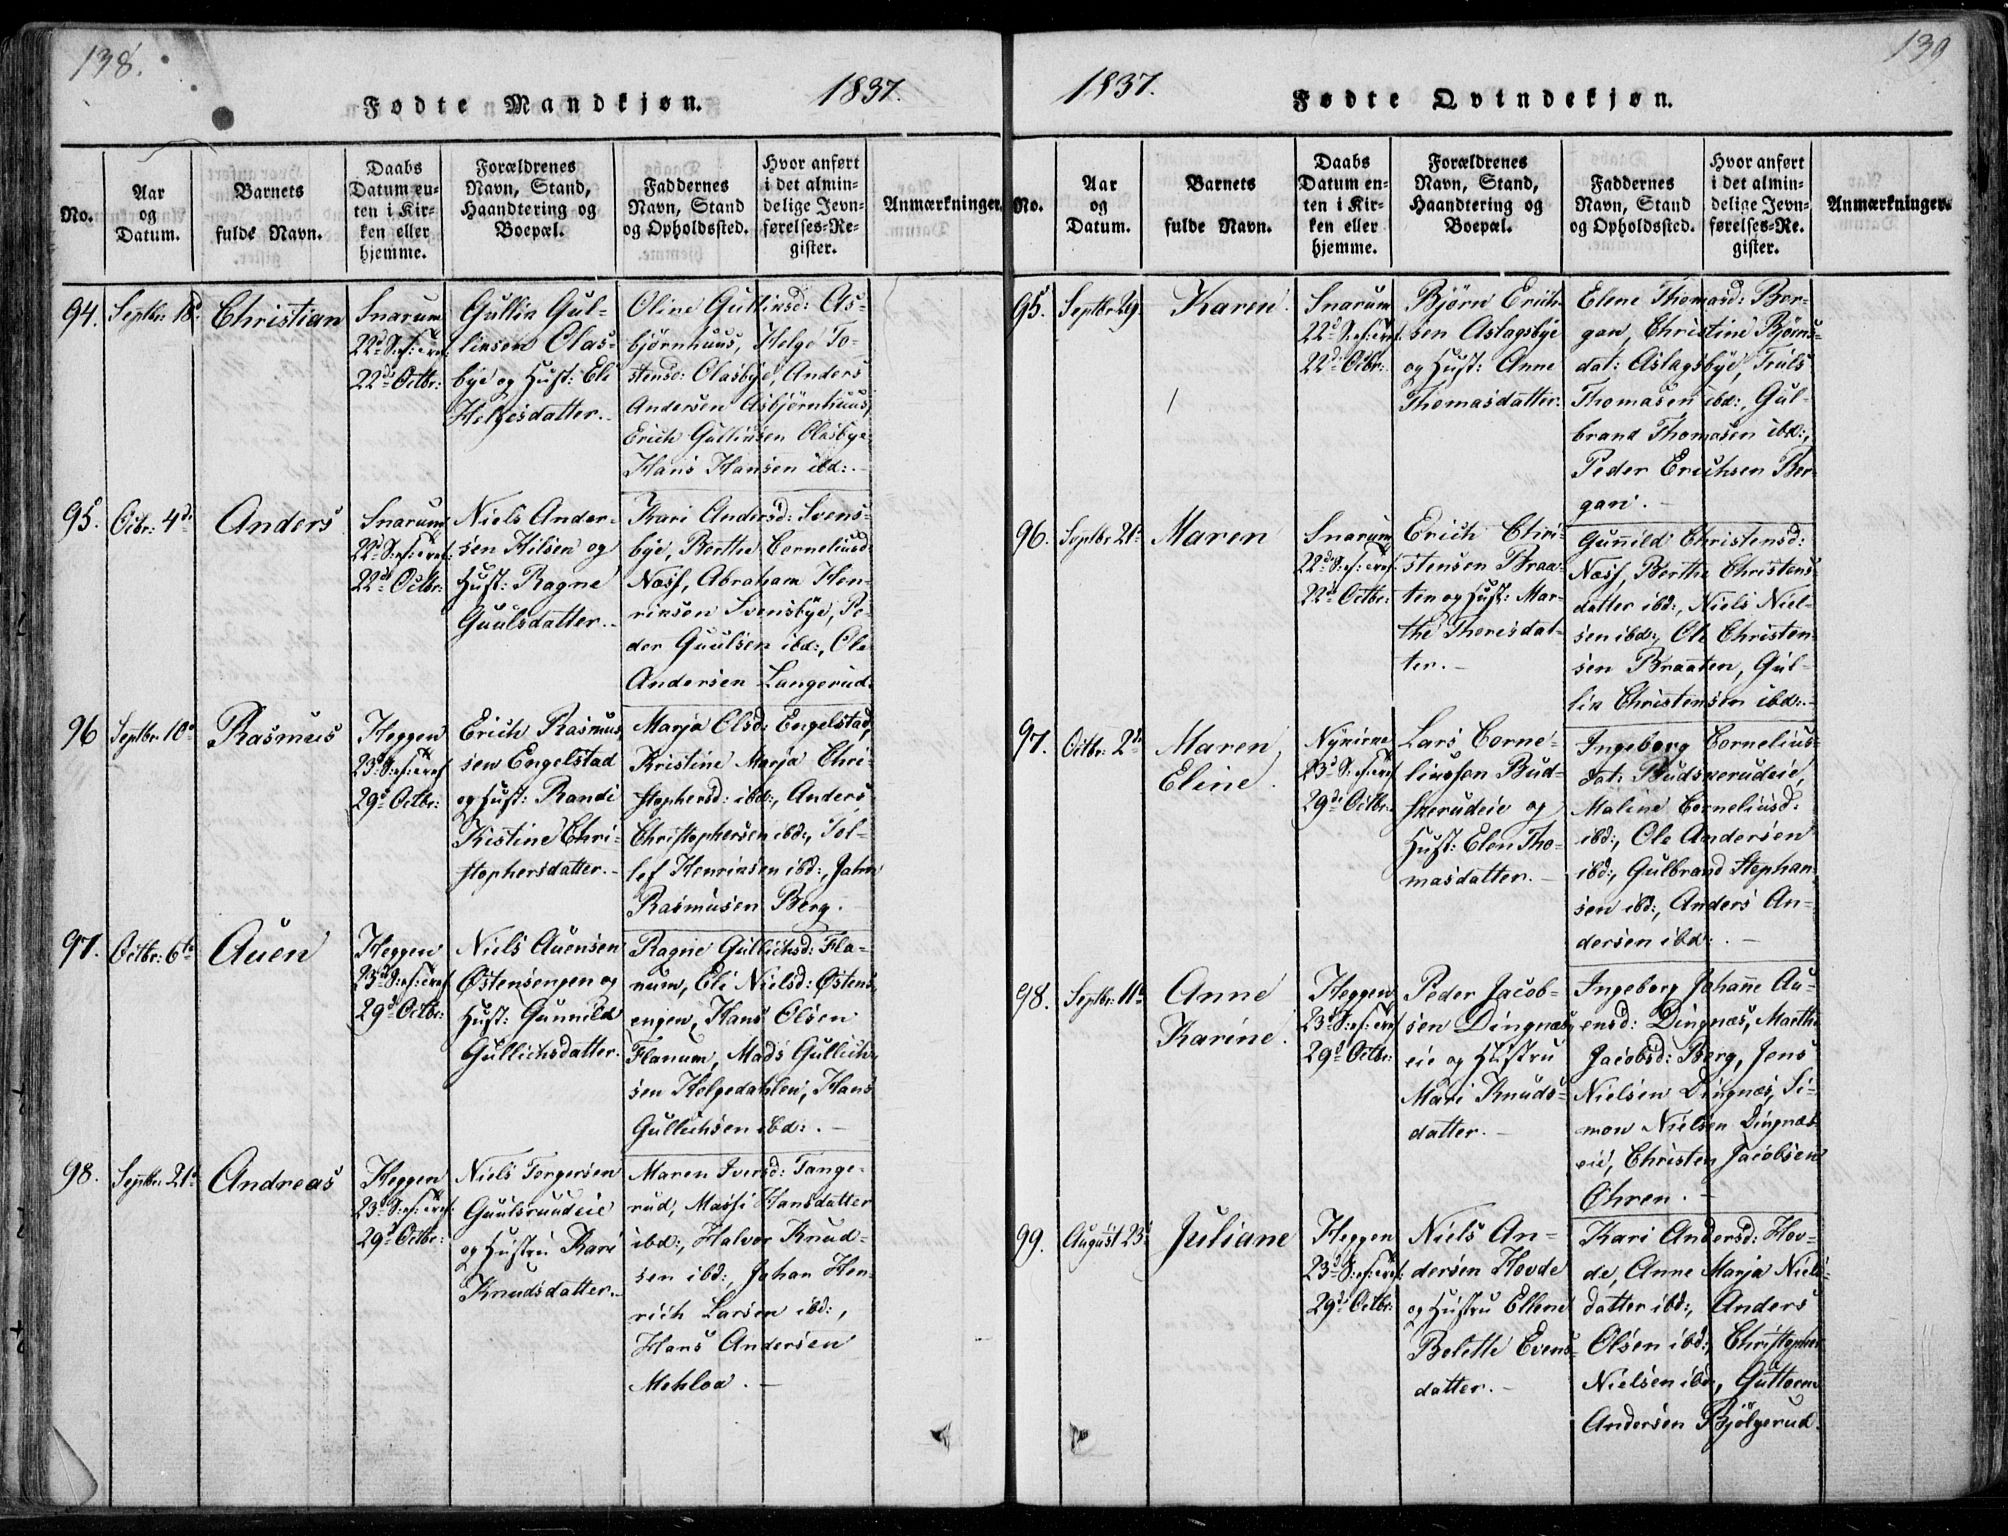 138.
Fødte Mandkjøn.
1837.
No.
Aar
og
Datum.
Barnets
fulde Navn.
Daabs
Datum en-
ten i Kir-
ken eller
hjemme.
Forældrenes
Navn, Stand,
Haandtering og
Boepæl.
Faddernes
Navn, Stand
og Opholdssted.
Hvor anført
i det almin-
delige Jevn-
førelses-Re-
gister.
Anmærkninger.
94.
Septbr: 18d
Christian
Snarum
22d S: ef: Tref:
22d Octbr:
Gullik Gul-
liksen Olas-
bye og Hust: Eli
Helgesdatter.
Oline Gulliksd: As-
bjørnhuus, Helge To-
stensd: Olasbye, Anders
Andersen Asbjørnhuus,
Erich Gulliksen Olasbye,
Hans Hansen ibd:.
95.
Octbr: 4de
Anders
Snarum
22d S: ef: Tref:
22d Octbr:
Niels Ander-
sen Hilsen og
Hust: Ragne
Guulsdatter.
Kari Andersd: Svens-
bye, Berthe Corneliusd:
Næss, Abraham Hen-
riksen Svensbye, Pe-
der Guulsen ibd:, Ole
Andersen Langerud.
96
Septbr: 10d
Rasmus
Heggen
23d S: ef: Tref
29d Octbr:
Erich Rasmus-
sen Engelstad
og Hust: Randi
Kistine Chri-
stophersdatter.
Marja Olsd: Engelstad,
Kristine Marja Chri-
stophersd: ibd:, Anders
Christophersen ibd:, Tol-
lef Henriksen ibd:, John
Rasmusen Berg.
97.
Octbr: 6te
Auen
Heggen
23d S: ef: Tref
29d Octbr:
Niels Auensen
Østensengen og
Hust: Gunnild
Gullichsdatter.
Ragne Gullichsd: Fla-
num, Eli Nielsd: Østens-
engen, Hans Olsen
Flanum, Mads Gullich-
sen Helgedahlen, Hans
Gullichsen ibd:.
98.
Septbr: 21d
Andreas
Heggen
23d S: ef: Tref:
29d Octbr:
Niels Torgersen
Guulsruudeie
og Hustru Kari
Knudsdatter.
Maren Iversd: Tange-
rud, Massi Hansdatter
ibd:, Halvor Knud-
sen ibd:, Johan Hen-
rich Larsen ibd:,
Hans Andersen
Mehloa.
139
1837.
Fødte Qvindekjøn.
No.
Aar
og
Datum.
Barnets
fulde Navn.
Daabs
Datum en-
ten i Kir-
ken eller
hjemme.
Forældrenes
Navn, Stand,
Haandtering og
Boepæl.
Faddernes
Navn, Stand
og Opholdssted.
Hvor anført
i det almin-
delige Jevn-
førelses-Re-
gister.
Anmærkninger.
95.
Septbr: 29
Karen.
Snarum
22d S: ef: Tref:
22d Octbr:
Bjørn Erich-
sen Aslagsbye
og Hust: Anne
Thomasdatter.
Elene Thomasd: Ber-
gan, Christine Bjørns-
dat: Aslagsbye, Truls
Thomasen ibd:, Gul-
brand Thomasen ibd:,
Peder Erichsen Ber-
gan.
96.
Septbr: 21d
Maren
Snarum
22d S: ef: Tref:
22d Octbr:
Erich Chri-
stensen Braa-
ten og Hust: Mar-
the Thoresdat-
ter.
Gunnild Christensd:
Næss, Berthe Christens-
datter ibd:, Niels Niel-
sen ibd:, Ole Christen-
sen Braaten, Gul-
lik Christensen ibd:.
97.
Octbr: 2den
Maren
Eline.
Nykirke
23d S: ef: Tref
29d Octbr:
Lars Corne-
liusson Bud-
skerudeie og
Hust: Elen Tho-
masdatter.
Ingeborg Cornelius-
dat: Budskerudeie,
Maline Corneliusd:
ibd:, Ole Andersen
ibd:, Gulbrand Stephan-
sen ibd:, Anders An-
dersen ibd:.
98.
Septbr: 11d
Anne
Karine.
Heggen
23d S: ef: Tref
29d Octbr:
Peder Jacob-
sen Dingnæs-
eie og Hustru
Mari Knuds-
datter.
Ingeborg Johanne Au-
ensd: Dingnæs, Marthe
Jacobsd: Berg, Jens
Nielsen Dingnæs, Si-
mon Nielsen Dingnæs-
eie, Christen Jacobsen
Øhren.
99.
August 23d
Juliane
Heggen
23d S: ef: Tref:
29d Octbr:
Niels An-
dersen Hovde
og Hustru Ellene
Belette Evens-
datter.
Kari Andersd: Hov-
de, Anne Marja Niels-
datter ibd:, Anders
Olsen ibd:, Christopher
Nielsen ibd:, Guttorm
Andersen Bjølgerud.